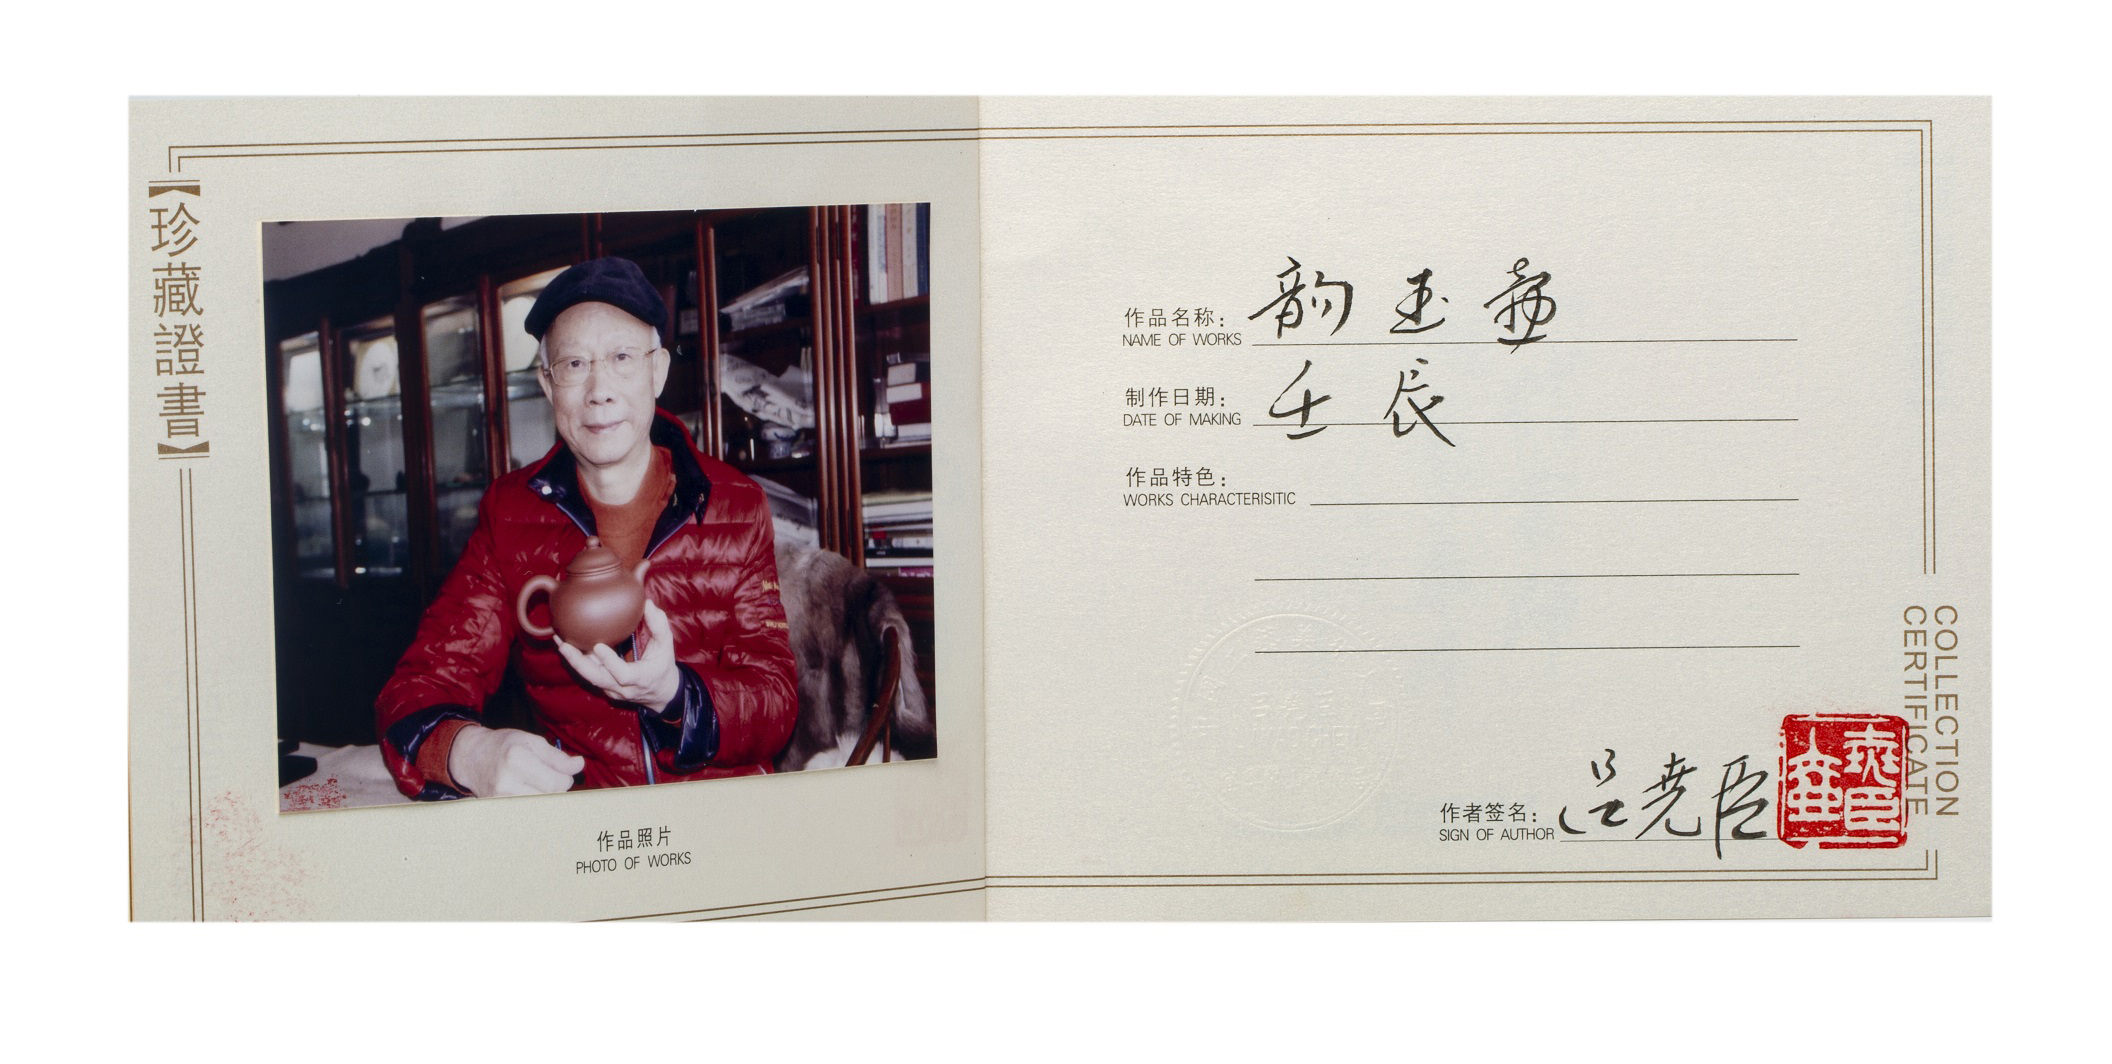 【珍藏證書】
作品照片
PHOTO OF WORKS
作品名称：韵玉壶
NAME OF WORKS
制作日期：壬辰
DATE OF MAKING
作品特色：
WORKS CHARACTERISITIC
作者签名：吕尧臣
SIGN OF AUTHOR
COLLECTION
CERTIFICATE